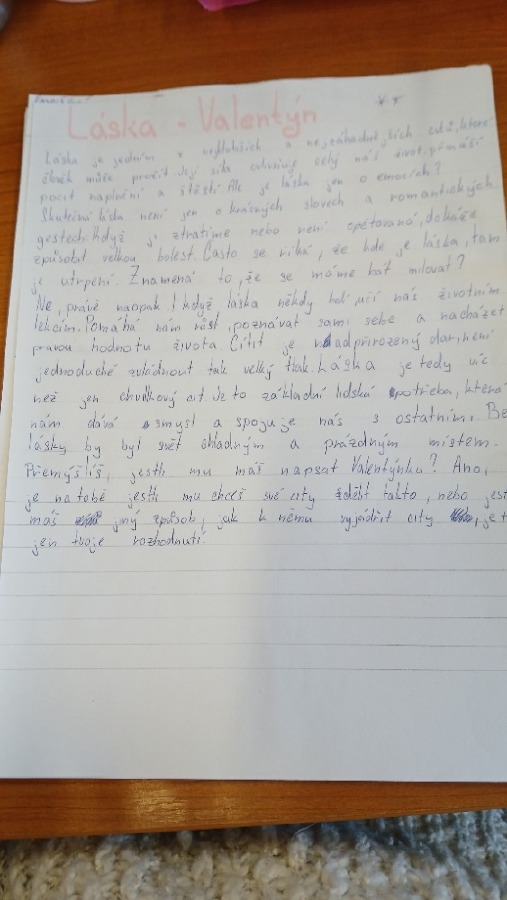 Láska - Valentýn
Láska je jedním z nejhlubších a nejzáhadnějších citů, které
člověk může prožít. Její síla ovlivňuje celý náš život, přináší
pocit naplnění a štěstí. Ale je láska jen o emocích?
Skutečná láska není jen o krásných slovech a romantických
gestech. Když ji ztratíme nebo není opětovaná, dokáže
způsobit velkou bolest. Často se říká, že kde je láska, tam
je utrpení. Znamená to, že se máme bát milovat?
Ne, právě naopak! I když láska někdy bolí, učí nás životním
lekcím. Pomáhá nám růst, poznávat sami sebe a nacházet
pravou hodnotu života. Cítit je nadpřirozený dar, není
jednoduché zvládnout tak velký tlak. Láska je tedy víc
než jen chvilkový cit. Je to základní lidská potřeba, která
nám dává smysl a spojuje nás s ostatním. Be
lásky by byl svět chladným a prázdným místem.
Přemýšlíš, jestli mu máš napsat Valentýnku? Ano,
je na tobě jestli mu chceš své city sdělit takto, nebo jest
máš jiný způsob, jak k němu vyjádřit city, je t
jen tvoje rozhodnutí.